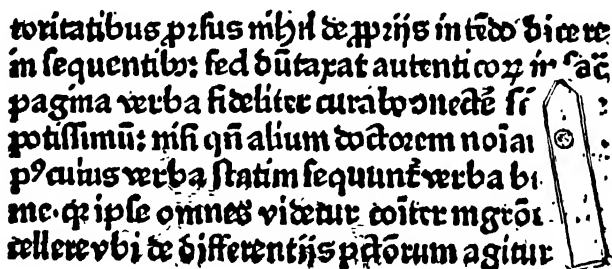 toritatibus prsus nihil de ꝓprijs intēdo dicere
in sequentibꝰ: sed dūtaxat autenticoꝝ in sac̄
pagina verba fideliter curabo ↄnectē
potissimū: nisi qn̄ alium doctorem noīa
pꝰ cuius verba statim sequunt̄ verba
me. qꝛ ipse omnes videtur cōiter
cellere vbi de differentijs pctōrum agitur